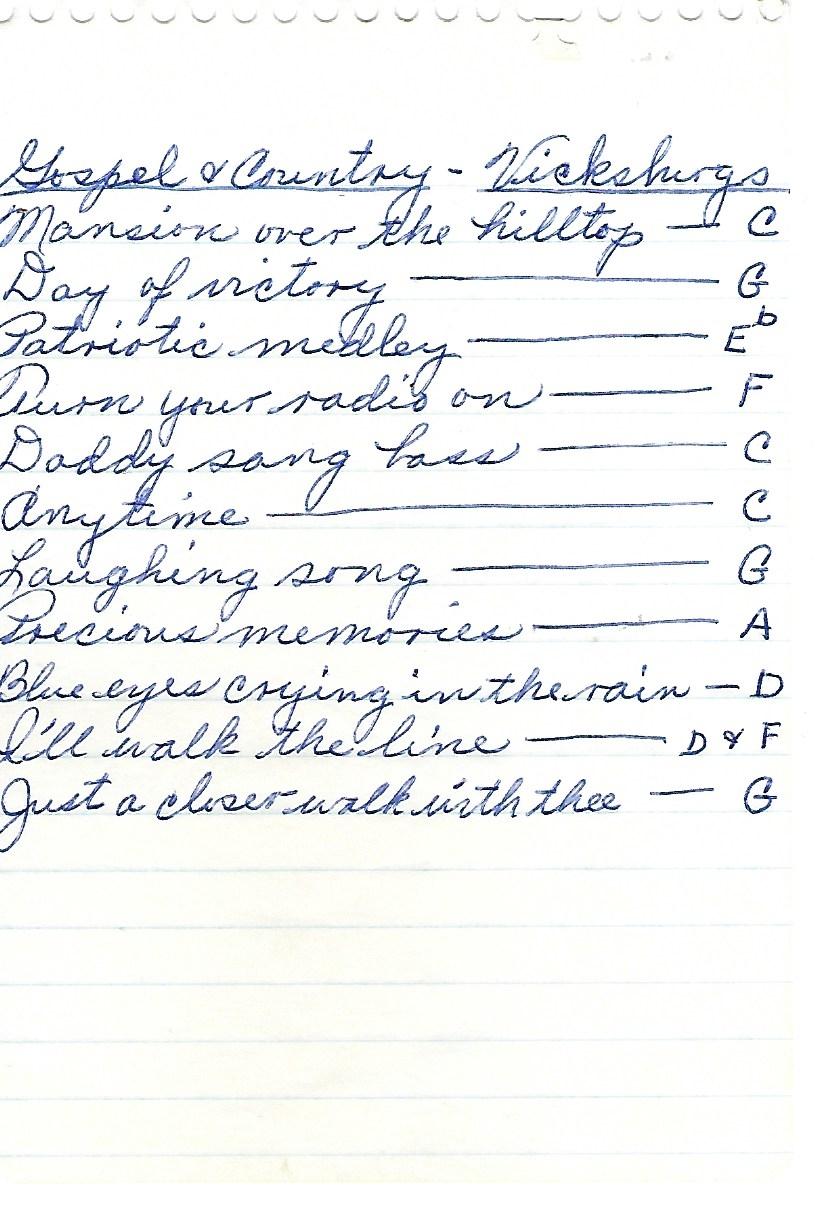 Gospel & Country - Vicksburgs
Mansion over the hilltop — C
Day of victory — G
Patriotic medley — E♭
Turn your radio on — F
Daddy sang bass — C
Anytime — C
Laughing song — G
Precious memories — A
Blue eyes crying in the rain — D
I'll walk the line — D & F
Just a closer walk with thee — G